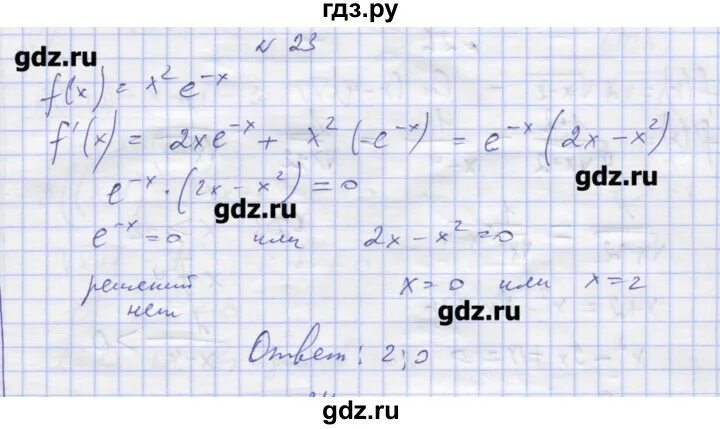 гдз.ру
№ 23
gdz.ru
f(x) = x² e⁻ˣ
f'(x) = 2xe⁻ˣ + x² (-e⁻ˣ) = e⁻ˣ (2x - x²)
gdz.ru
e⁻ˣ · (2x - x²) = 0
gdz.ru
e⁻ˣ = 0 или 2x - x² = 0
решений нет x = 0 или x = 2
gdz.ru
Ответ: 2; 0
gdz.ru